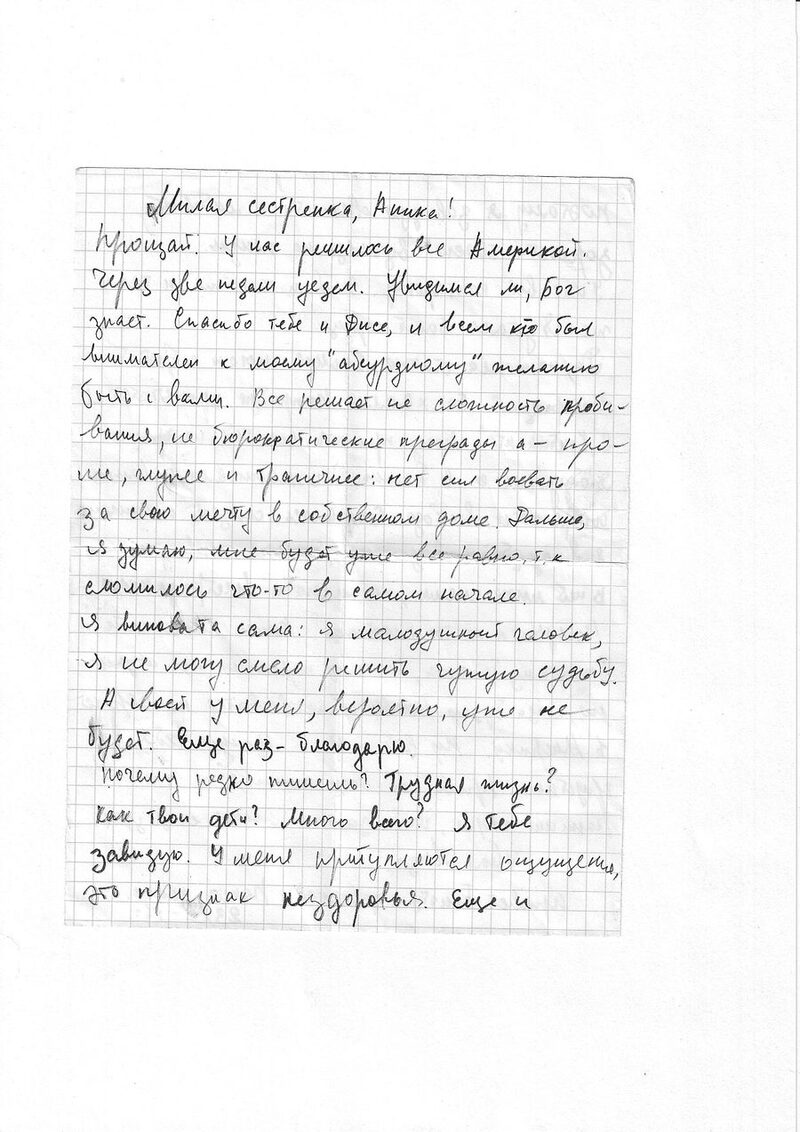 Милая сестренка, Аника!
Прощай. У нас решилось все Америкой.
Через две недели уедем. Увидимся ли, Бог
знает. Спасибо тебе и Дисе, и всем кто был
внимателен к моему "абсурдному" желанию
быть с вами. Все решает не сложность проби-
вания, не бюрократические преграды а – про-
ще, глубже и трагичнее: нет сил воевать
за свою мечту в собственном доме. Дальше,
я думаю, мне будет уже все равно, т.к
сломилось что-то в самом начале.
Я виновата сама: я малодушный человек,
я не могу смело решить чужую судьбу.
А своей у меня, вероятно, уже не
будет. Еще раз – благодарю.
Почему редко пишешь? Трудная жизнь?
Как твои дети? Много всего? Я тебе
завидую. У меня притупляются ощущения,
это признак нездоровья. Еще и